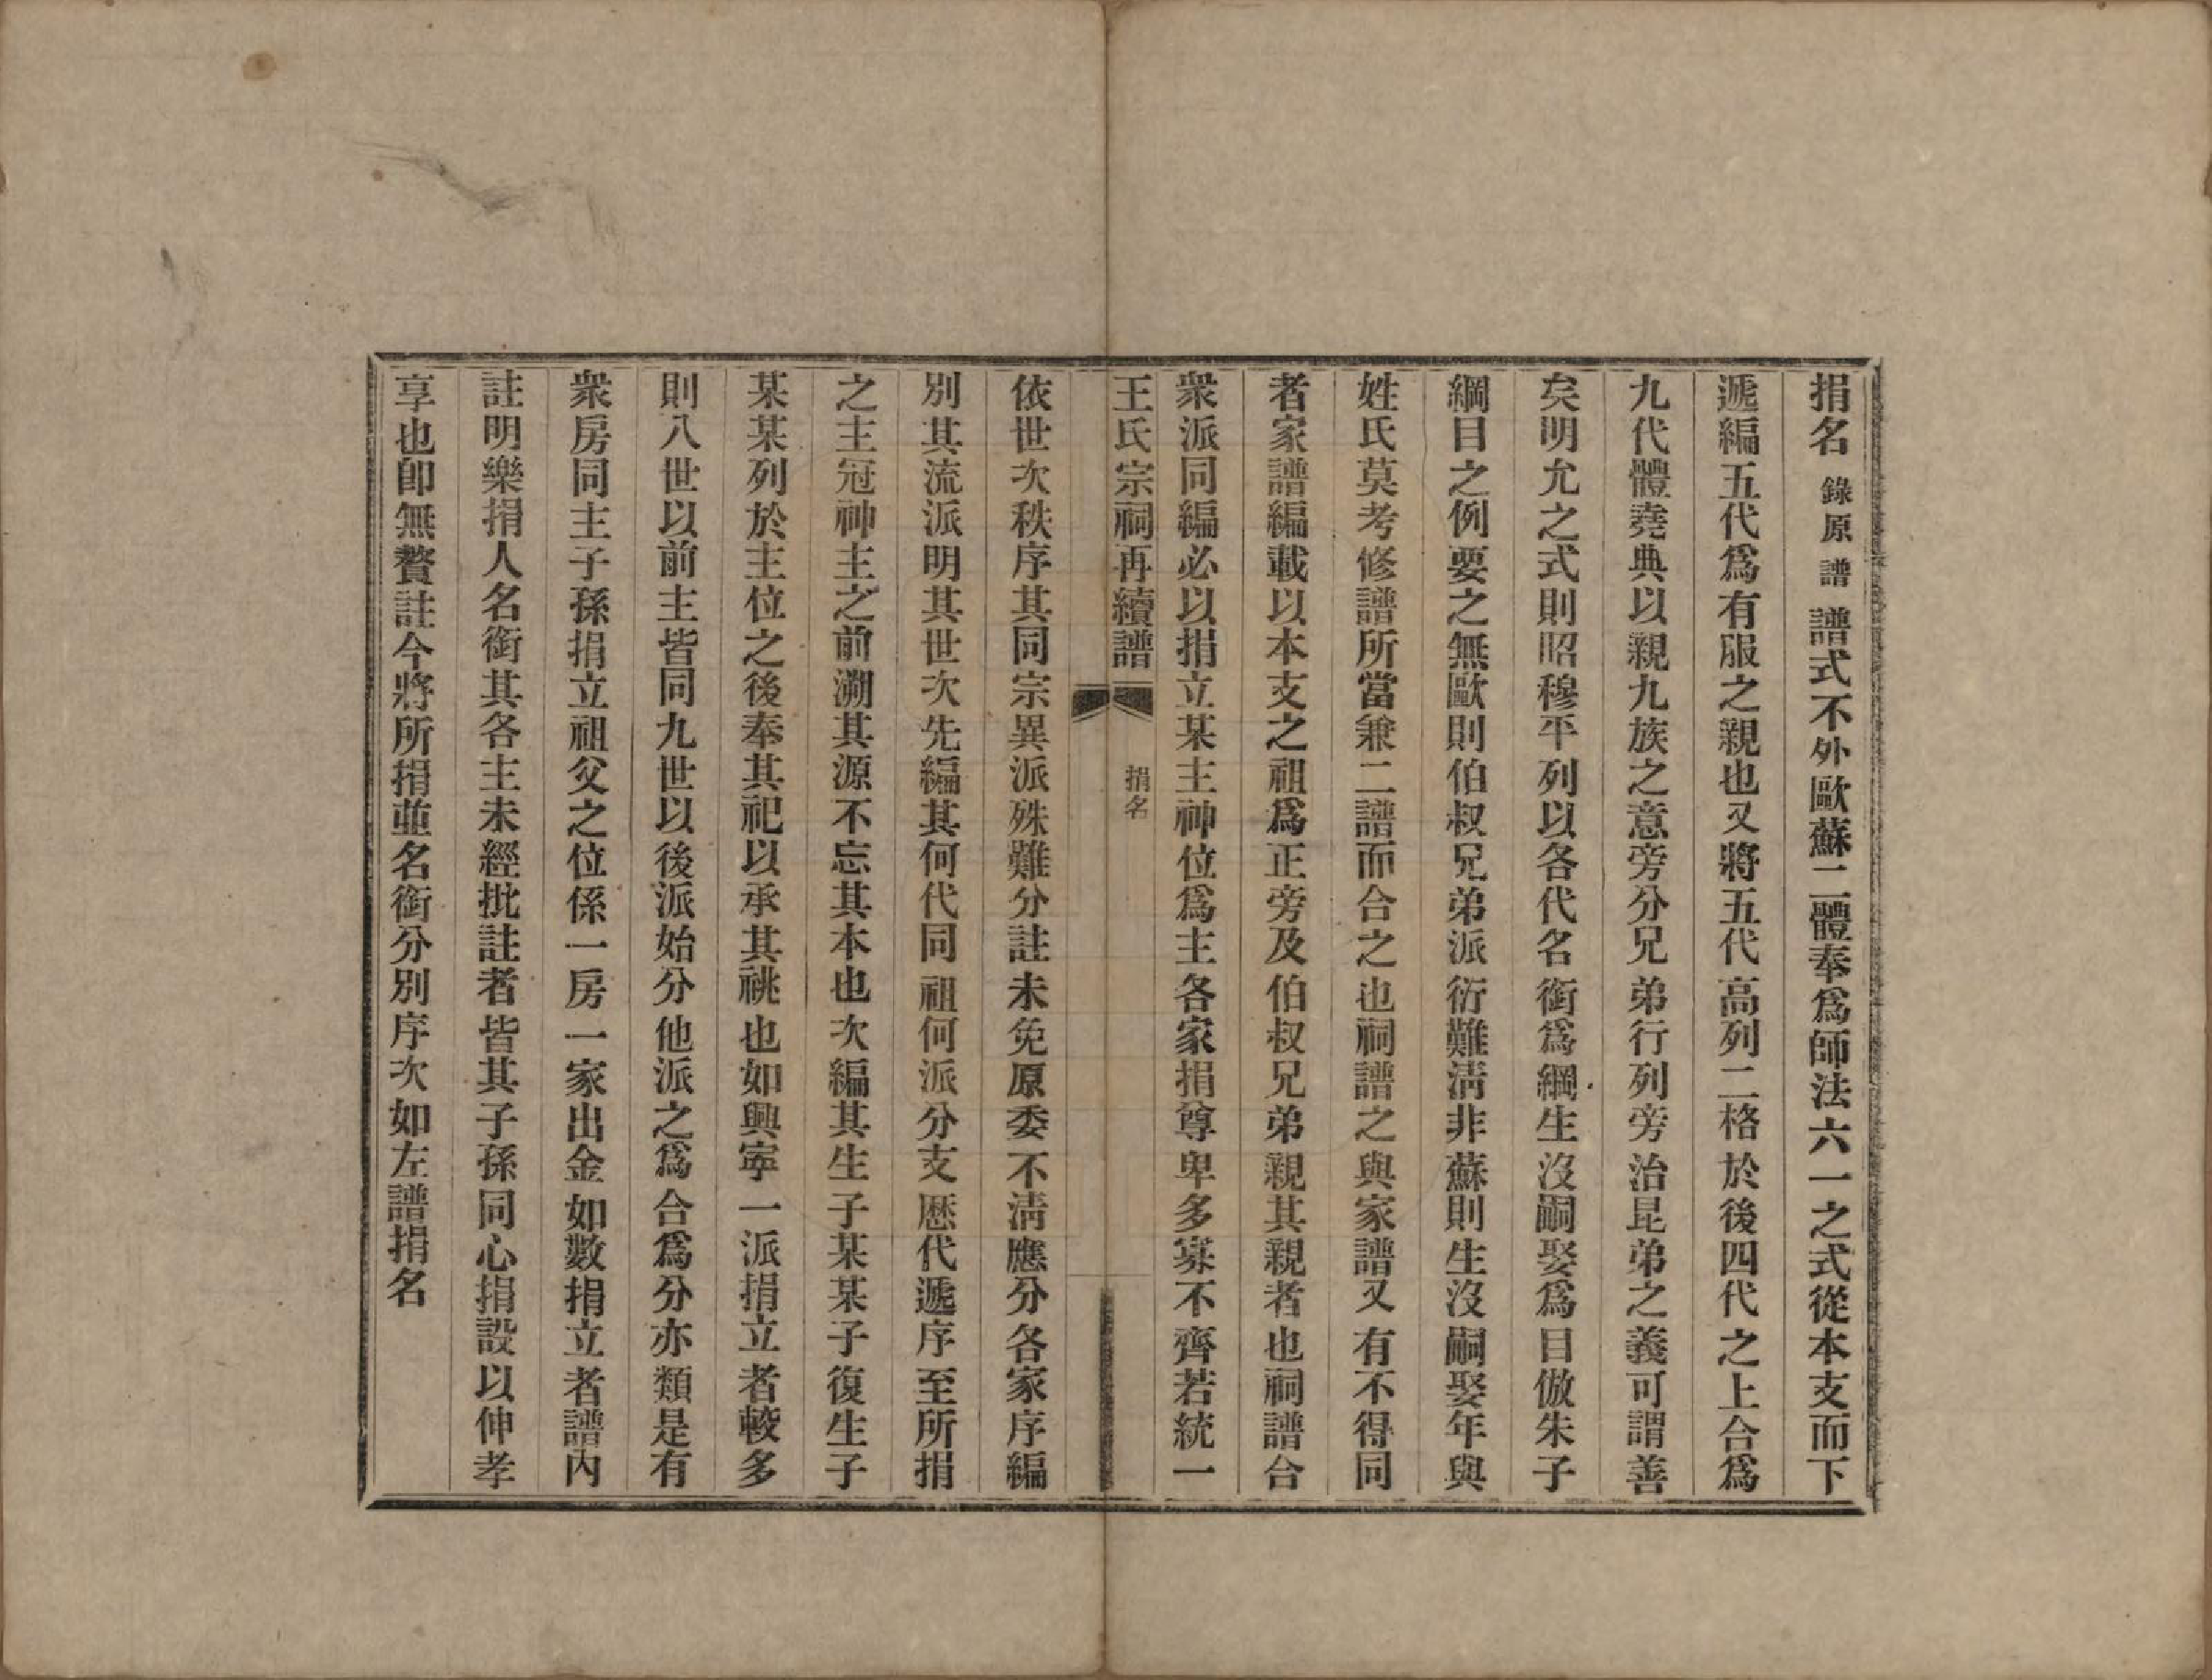 捐名 錄原譜 譜式不外歐蘇二體奉爲師法六一之式從本支而下
遞編五代爲有服之親也又將五代高列二格於後四代之上合爲
九代體堯典以親九族之意旁分兄弟行列旁治昆弟之義可謂善
矣明允之式則昭穆平列以各代名銜爲綱生沒嗣娶爲目倣朱子
綱目之例要之無歐則伯叔兄弟派衍難淸非蘇則生沒嗣娶年與
姓氏莫考修譜所當兼二譜而合之也祠譜之與家譜又有不得同
者家譜編載以本支之祖爲正旁及伯叔兄弟親其親者也祠譜合
衆派同編必以捐立某主神位爲主各家捐尊卑多寡不齊若統一
王氏宗祠再續譜 捐名
依世次秩序其同宗異派殊難分註未免原委不淸應分各家序編
別其流派明其世次先編其何代同祖何派分支歷代遞序至所捐
之主冠神主之前溯其源不忘其本也次編其生子某某子復生子
某某列於主位之後奉其祀以承其祧也如興寧一派捐立者較多
則八世以前主皆同九世以後派始分他派之爲合爲分亦類是有
衆房同主子孫捐立祖父之位係一房一家出金如數捐立者譜內
註明樂捐人名銜其各主未經批註者皆其子孫同心捐設以伸孝
享也卽無贅註今將所捐並名銜分別序次如左譜捐名